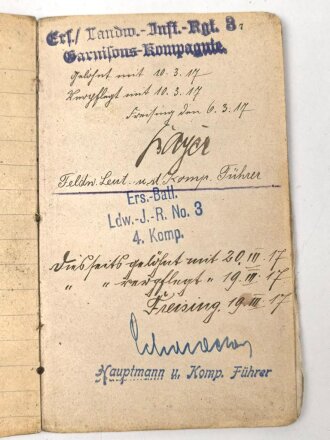 Ers./ Landw.-Inft.-Rgt. 3.
Garnisons-Kompagnie.
Gelöhnt mit 10.3.17
Verpflegt mit 10.3.17
Freising den 6.3.17
Feldw. Leut. u.d. Komp. Führer
Ers.-Batl.
Ldw.-J.-R. No. 3
4. Komp.
Diesseits gelöhnt mit 20.III.17
" " verpflegt " 19.III.17
Freising. 19.III.17
Hauptmann u. Komp. Führer